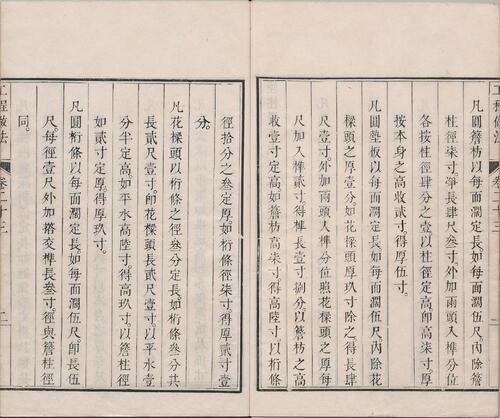 凡圓簷枋以每面濶定長如每面濶伍尺內除簷
柱徑柒寸淨長肆尺叁寸外加兩頭入榫分位
各按柱徑肆分之壹以柱徑定高卽高柒寸厚
按本身之高收貳寸得厚伍寸
凡圓墊板以每面濶定長如每面濶伍尺內除花
樑頭之厚壹分如花樑頭厚玖寸除之得長肆
尺壹寸外加兩頭入榫分位照花樑頭之厚每
尺加入榫貳寸得榫長壹寸捌分以簷枋之高
收壹寸定高如簷枋高柒寸得高陸寸以桁條
工程做法
徑拾分之叁定厚如桁條徑柒寸得厚貳寸壹
分
凡花樑頭以桁條之徑叁分定長如桁條叁分共
長貳尺壹寸卽花樑頭長貳尺壹寸以平水壹
分半定高如平水高陸寸得高玖寸以簷柱徑
如貳寸定厚得厚玖寸
凡圓桁條以每面濶定長如每面濶伍尺卽長伍
尺每徑壹尺外加搭交榫長叁寸徑與簷柱徑
同
工程做法 卷二十三 二